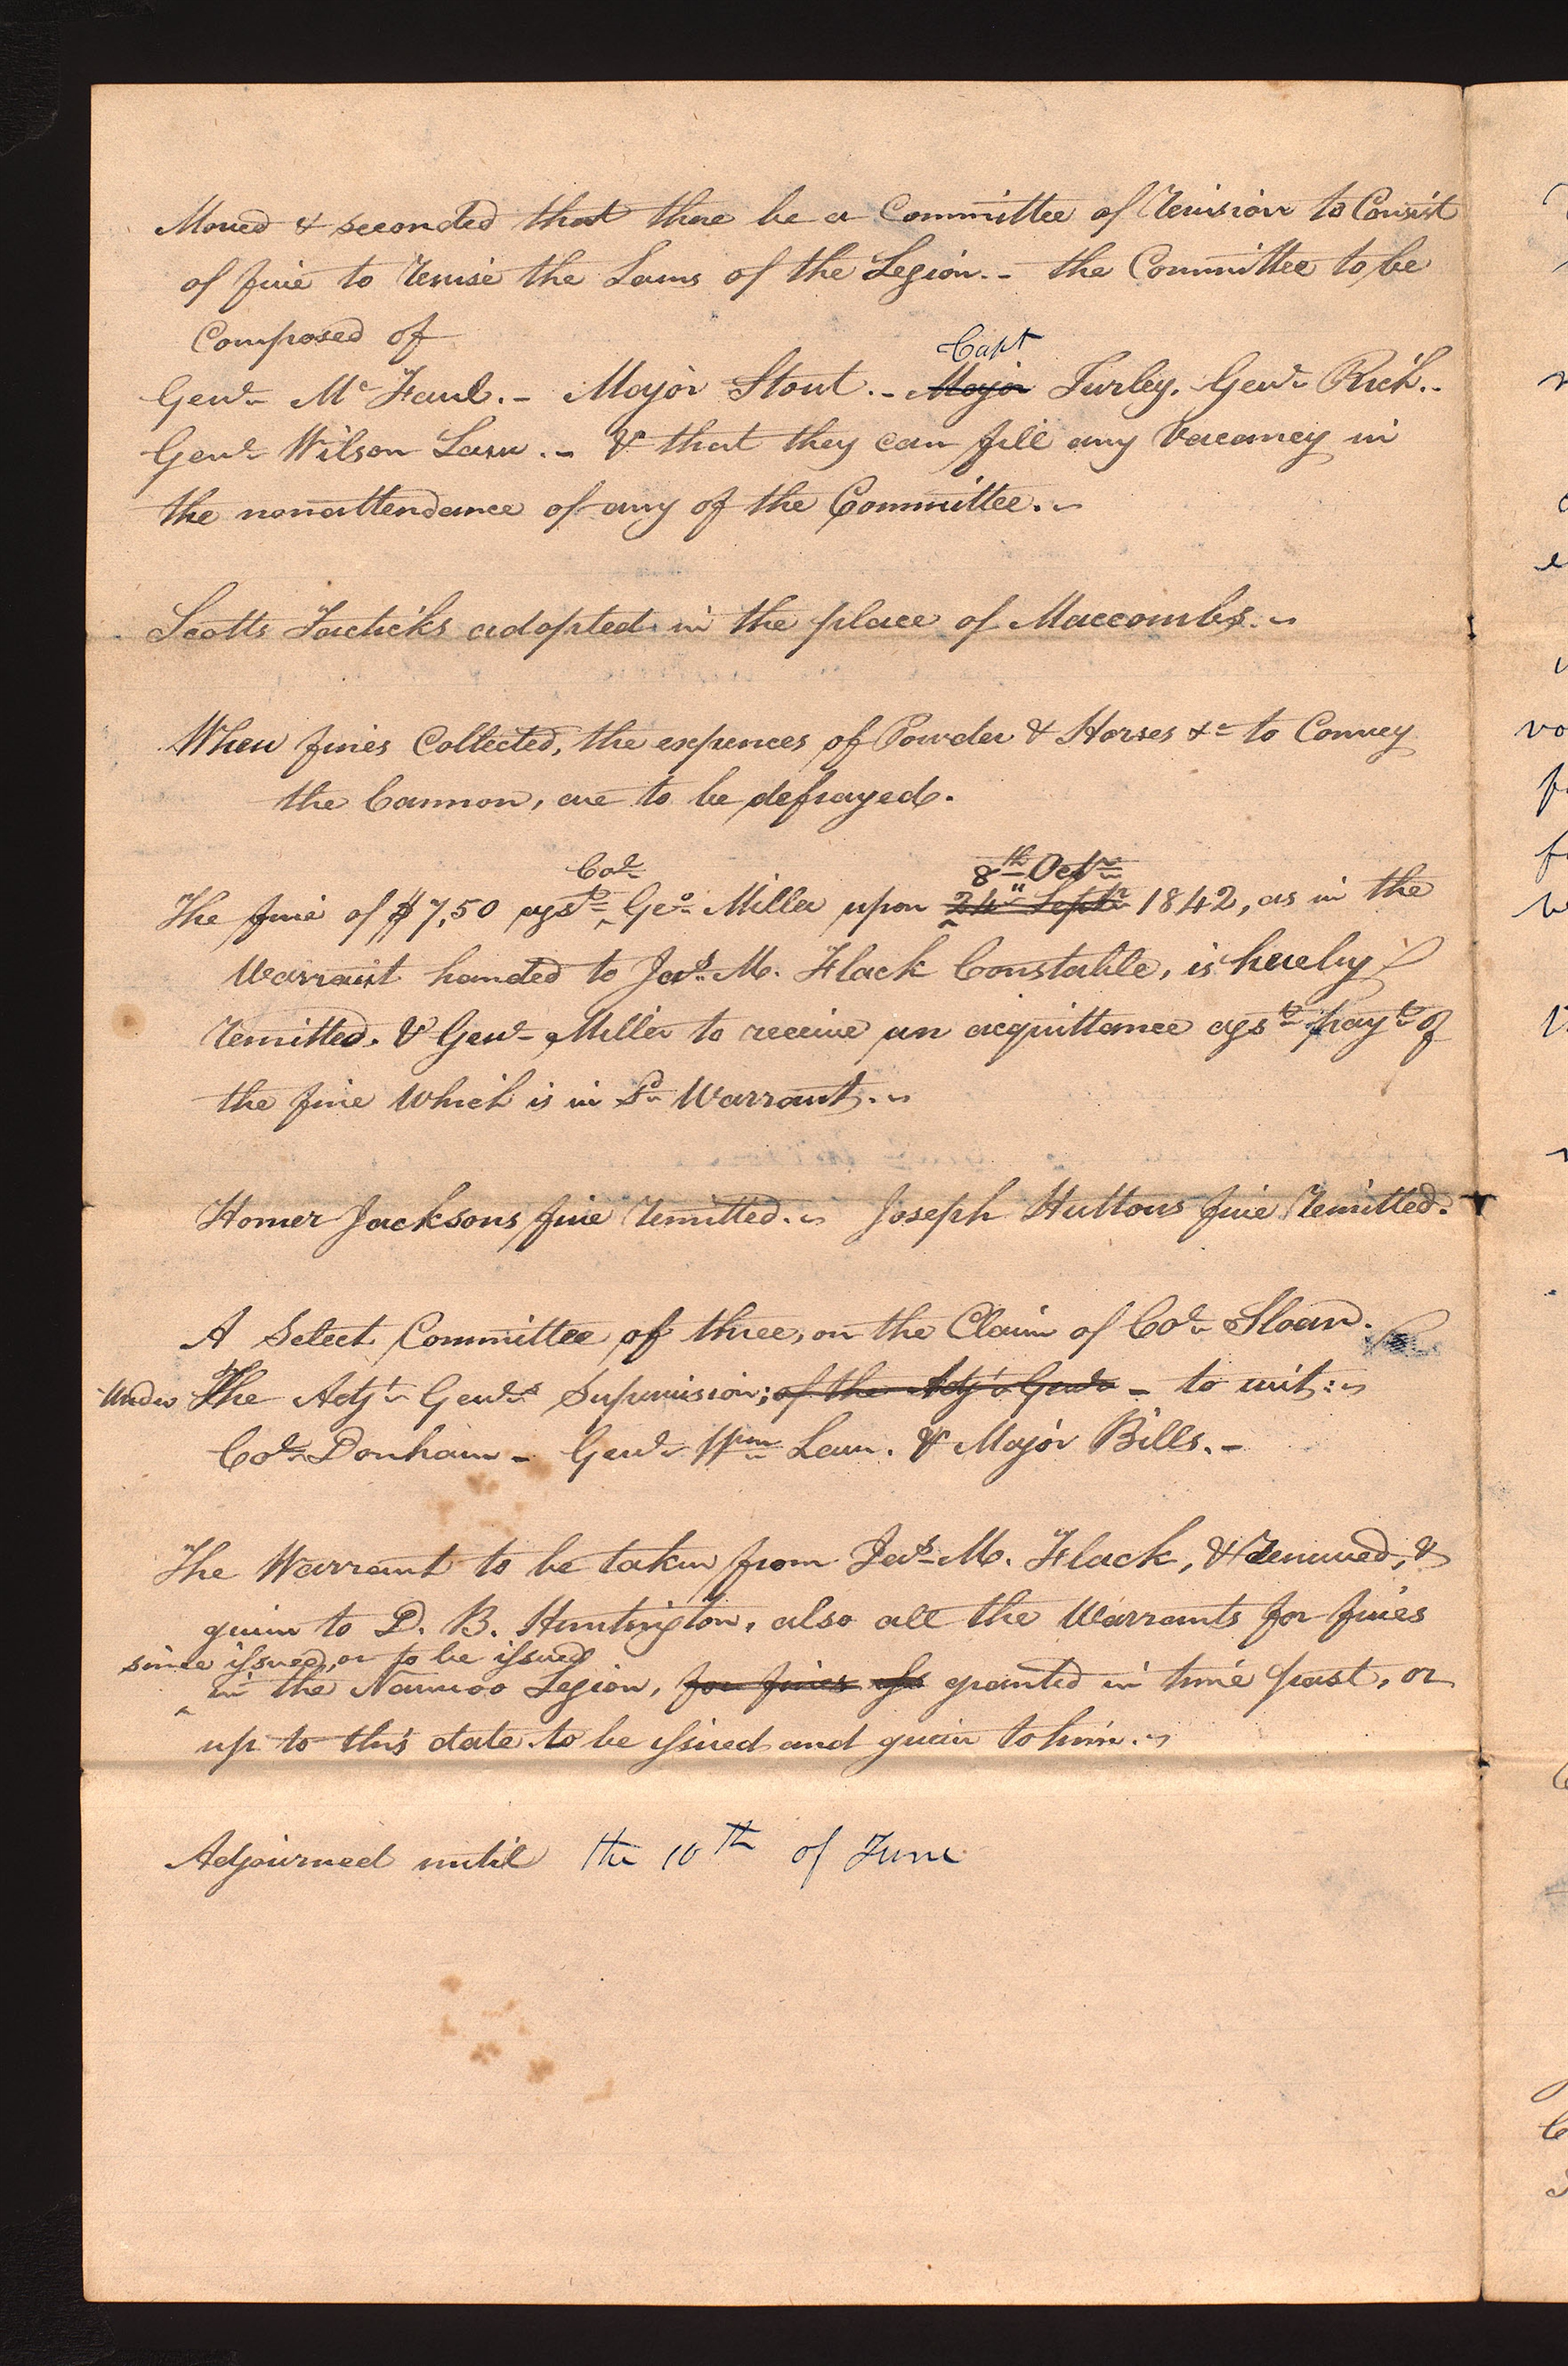 Moved & seconded that there be a Committee of Revision to Consist
of five to Revise the Laws of the Legion.- the Committee to be
Composed of
Capt
Genl. Mc Faul.- Major Stout.- Major Turley. Genl. Rich.-
Genl. Wilson Law.- & that they can fill any Vacancy in
the nonattendance of any of the Committee.~
Scotts Tacticks adopted in the place of Maccombs.~
When fines Collected, the expences of Powder & Horses &c to Convey
the Cannon, are to be defrayed.
Col. 8th Octr.
The fine of $7,50 agst. ^ Geo. Miller upon ^ 24" Septr 1842, as in the
Warrant handed to Jas. M. Flack Constable, is hereby
remitted. & Genl. Miller to receive an acquittance agst. payt. of
the fine Which is in Sd. Warrant.~
Homer Jacksons fine Remitted.~ Joseph Huttons fine Remitted.
A Select Committee of three, on the Claim of Col. Sloan.
Under The Adjt. Genls. Supervision; of the Adjt. Genl. - to wit:~
Col. Dunham - Genl. Wm. Law. & Major Bills.-
The Warrant to be taken from Jas. M. Flack, & Renewed, &
given to D. B. Huntington, also all the Warrants for fines
since issued, or to be issued
^ in the Nauvoo Legion, for fines granted in time past, or
up to this date to be issued and given to him.~
Adjourned until the 10th of June